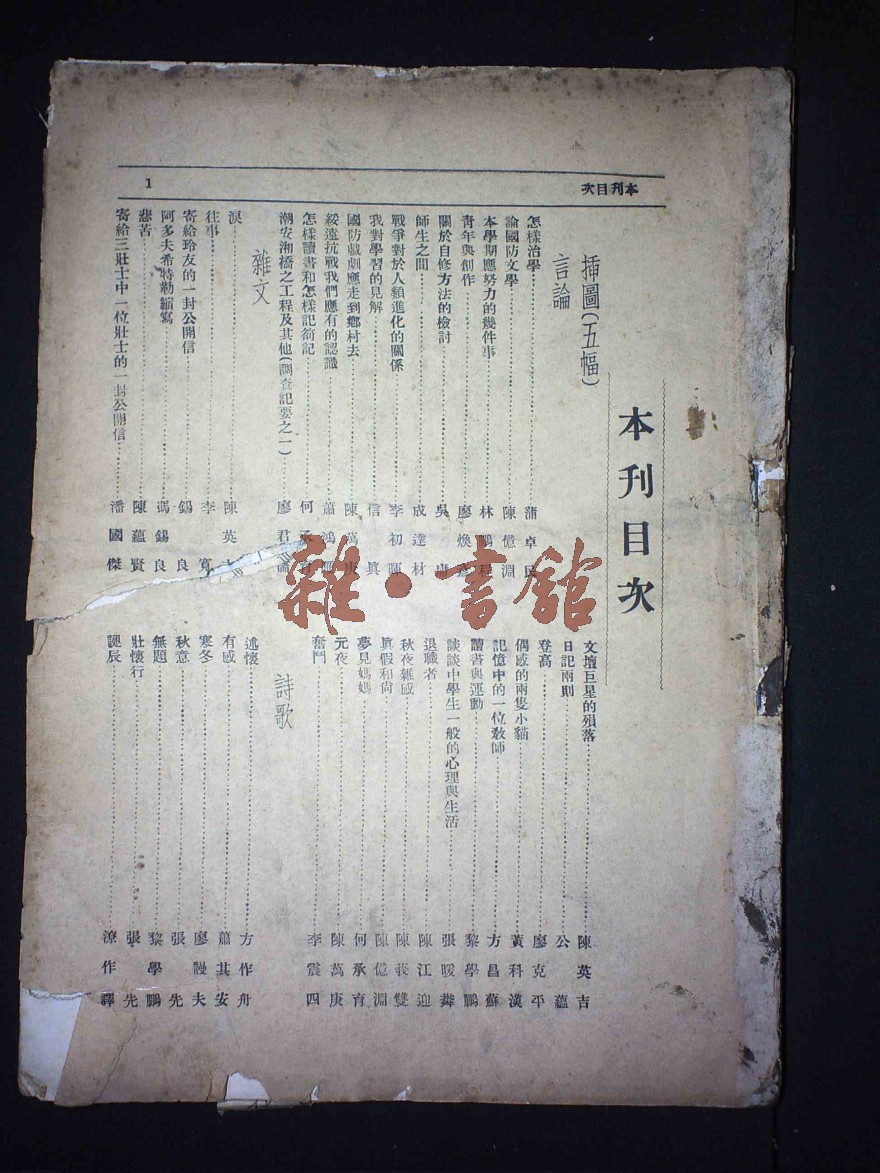 本刊目次
1
本刊目次
插圖(五幅)
言論
怎樣治學 蒲卓民
論國防文學 陳億淵
本學期應努力的幾件事 林鵬程
青年與創作 廖煥
關於自修方法的檢討 吳
師生之間 成達材
戰爭對於人類進化的關係 李初
我對學習的見解 信真
國防戲劇應走到鄉村去 陳萬
綏遠抗戰我們應有的認識 蕭鴻
怎樣讀書和怎樣記箚記 何承
潮安湘橋之工程及其他(調查記要之一) 廖君
雜文
淚 陳英
往事 李寬
寄給玲友的一封公開信 錫良
阿多夫希特勒縮寫 馮錫良
悲苦 陳蘊賢
寄給三壯士中一位壯士的一封公開信 潘國傑
文壇巨星的殞落 陳英吉
日記兩則 公蘊
登高 廖克平
偶感的兩隻小貓 黃科漢
記憶中的一位教師 方昌蘇
讀書與運動 黎學鵬
談談中學生一般的心理與生活 張暖
退職者 陳江迎
秋夜雜感 陳莪雙
真假和尙 陳億淵
夢見媽媽 何承育
元夜 陳萬庚
奮鬥 李震四
詩歌
述懷 方作舟
有感 蕭其安
寒冬 廖饅夫
秋意 張先
無題 黎學鵬
壯懷行 張先
誕辰 作譯
雜·書館